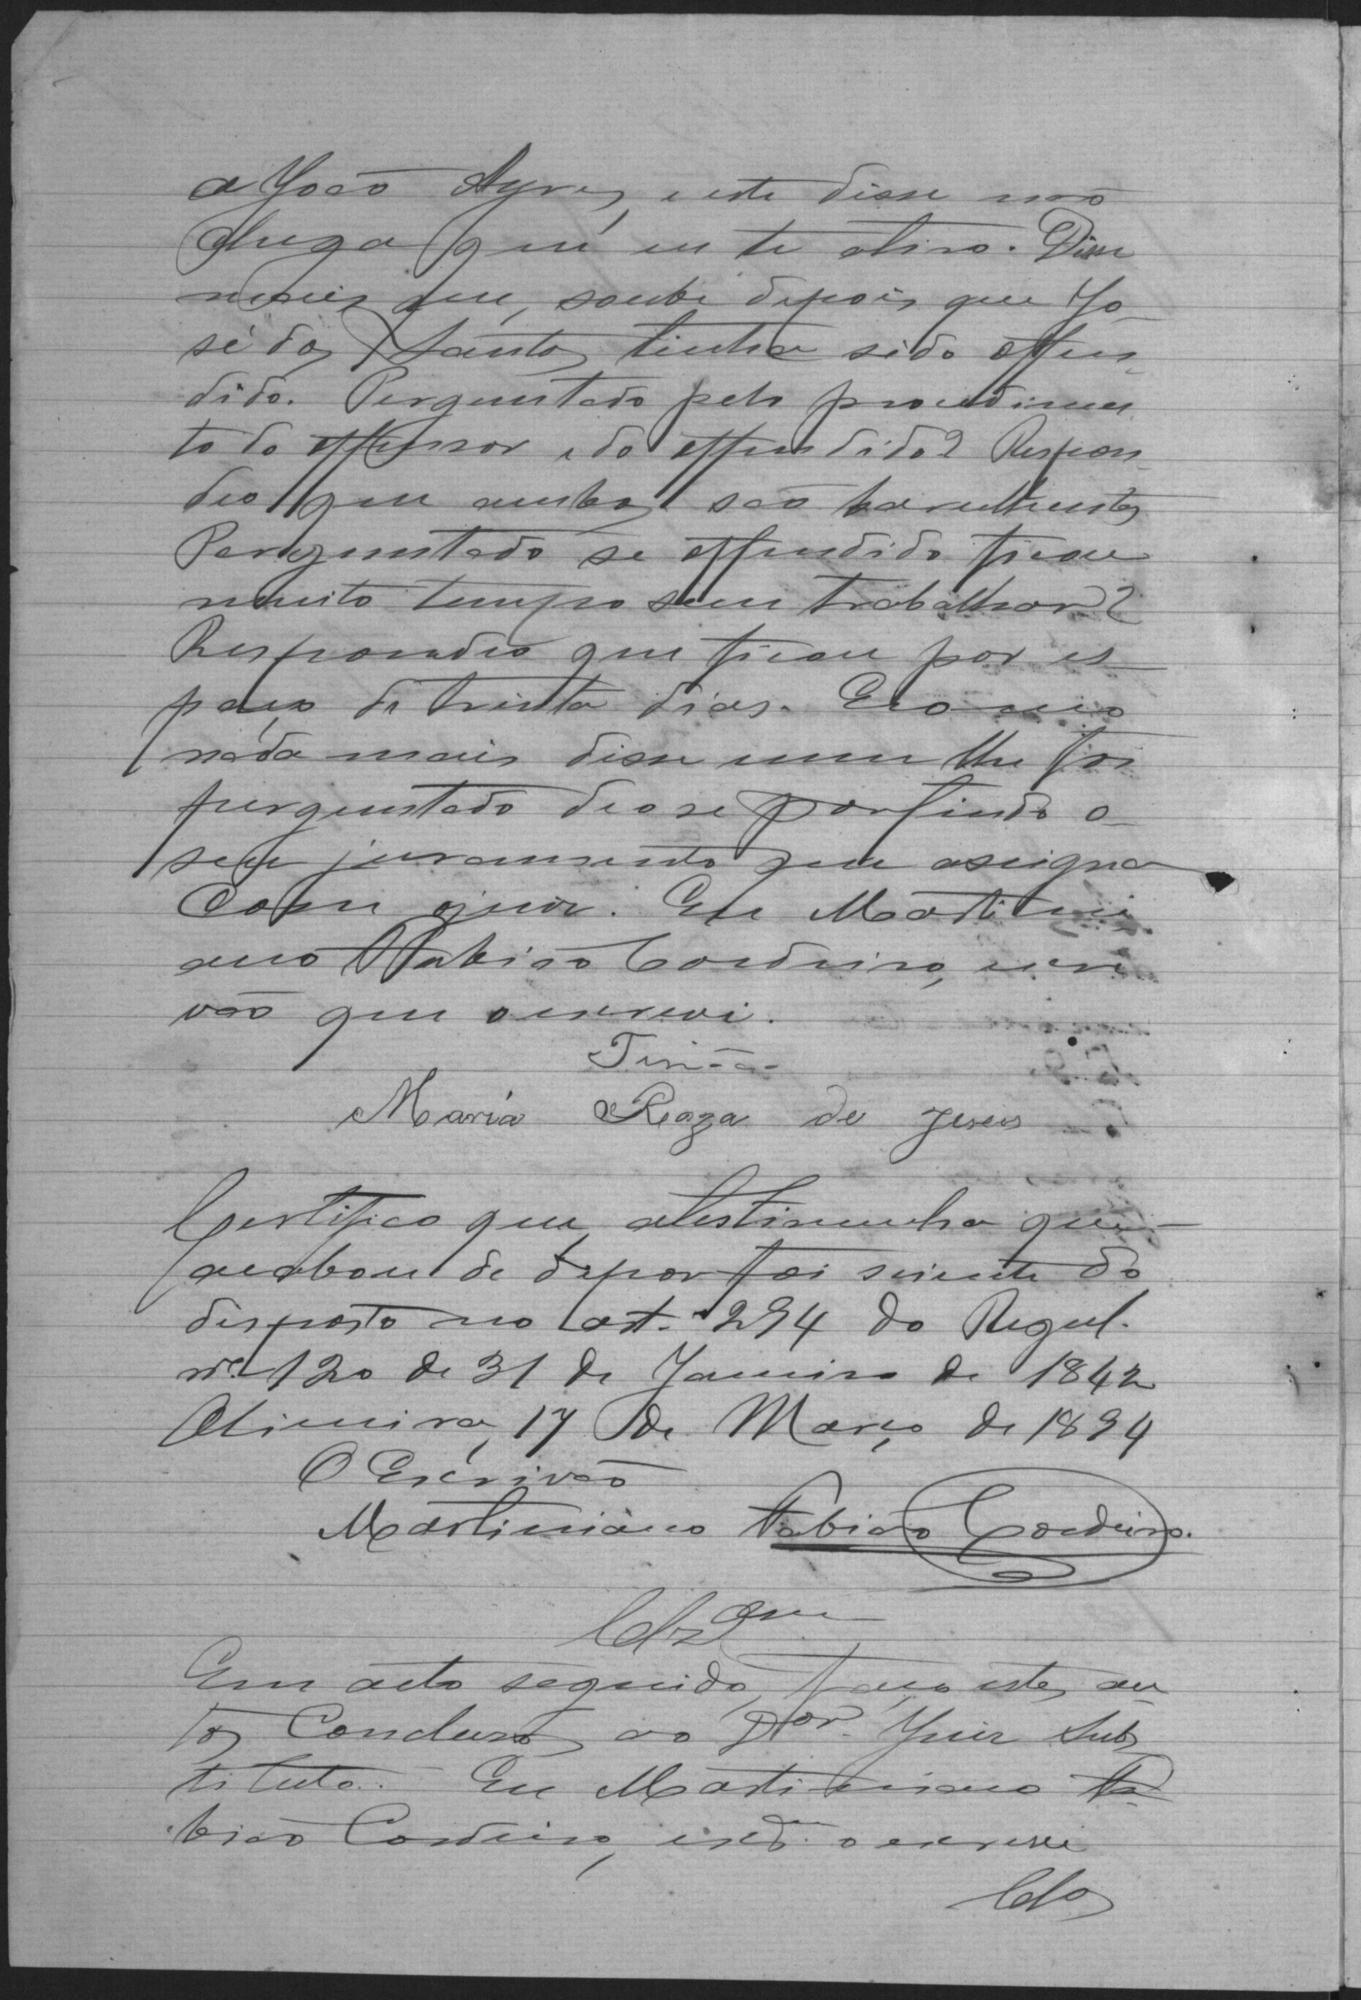 a João Ayres, e este disse não
chega que eu te atiro. Disse
mais que, soube depois que Jo-
sé dos Santos tinha sido offen-
dido. Perguntado pelo procedimen
to do offensor e do offendido? Respon-
deo que ambos são barulhentos
Perguntado se offendido ficou
muito tempo sem trabalhar?
Respondeo que ficou por es-
paço de trinta dias. E como
nada mais disse nem lhe foi
perguntado deo se por findo o
seu juramento que assigna
com o juiz. Eu Martini
ano Fabião Cordeiro, escri
vão que o escrevi.
Maria Roza de Jesus
Certifico que, a testimunha que
acabou de depor foi sciente do
disposto no art. 294 do Regul.
nº 120 de 31 de Janeiro de 1842
17 de Março de 1894
O Escrivão
Martiniano Fabião Cordeiro.
Clzam
Em acto seguido, faço estes au
tos Conclusos ao Dor. Juiz Subs
tituto. Eu Martiniano Fa
bião Cordeiro, escam o escrevi
Clos